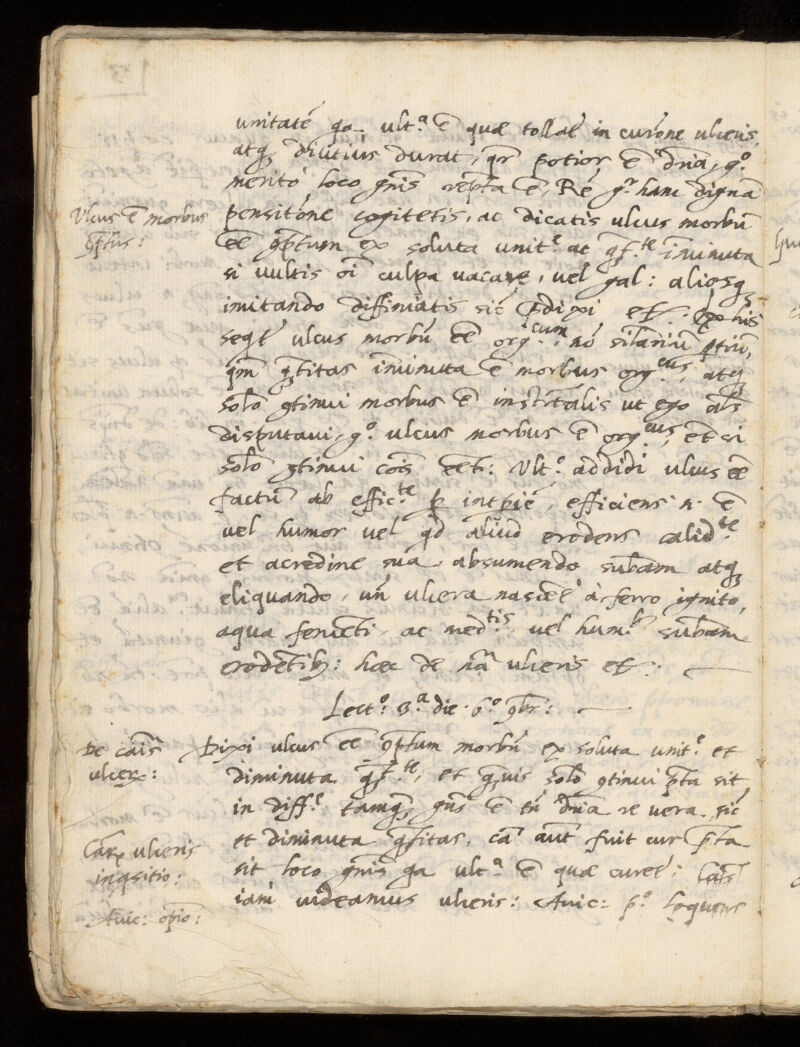 unitatē qa ult.ª ē quæ tollat̄ in curōne ulceris,
atq; diutius durat, qr potior ē drīa, g.º
merito loco gnīs repta ē, Rē gr̄ hanc dignā
Ulcus ē morbus
gptus:
pensitōne cogitetis, ac dicatis ulcus morbū
eē gptum ex soluta unit.e at qt.te iminuta
si vultis oī culpa vacare, vel gal: aliosq;
imitando diffiniatis sic ut dixi et. Ex his
seqt̄ ulcus morbū eē org.cum, nō silariū ptiū,
qm̄ qtitas iminuta ē morbus org.cus, atq;
solō gtinui morbus ē instrtalis ut ego als
disputavi, g.º ulcus morbus ē org.cus, et si
solō gtinui cois eēt: Ult.º addidi ulcus eē
factū ab effic.te p intpiē, efficiens n. ē
vel humor vel qd aliud erodens calid.te
et acredine sua, absumendo subam atq;
eliquando, un̄ ulcera nascēt à ferro ignito,
aqua fervēti, ac med.tis, vel hum.b subam
erodētib;: hæc de nā ulceris et:
Lect.º 3.ª die. 6.º 9br:
De cais
ulcer:
Dixi ulcus eē gptum morbū ex soluta unit.e et
diminuta qt.te, et quis solō gtinui pta sit
in diff.e tamq; gns ē tn̄ drīa re vera, sic
et diminuta qtitas, cā aut fuit cur pta
Car ulceris
inqsitio:
sit loco gnīs qa ult.ª ē quæ curet̄: Cais
iam videamus ulceris: Avic: p.º loquens
Avic: opio: